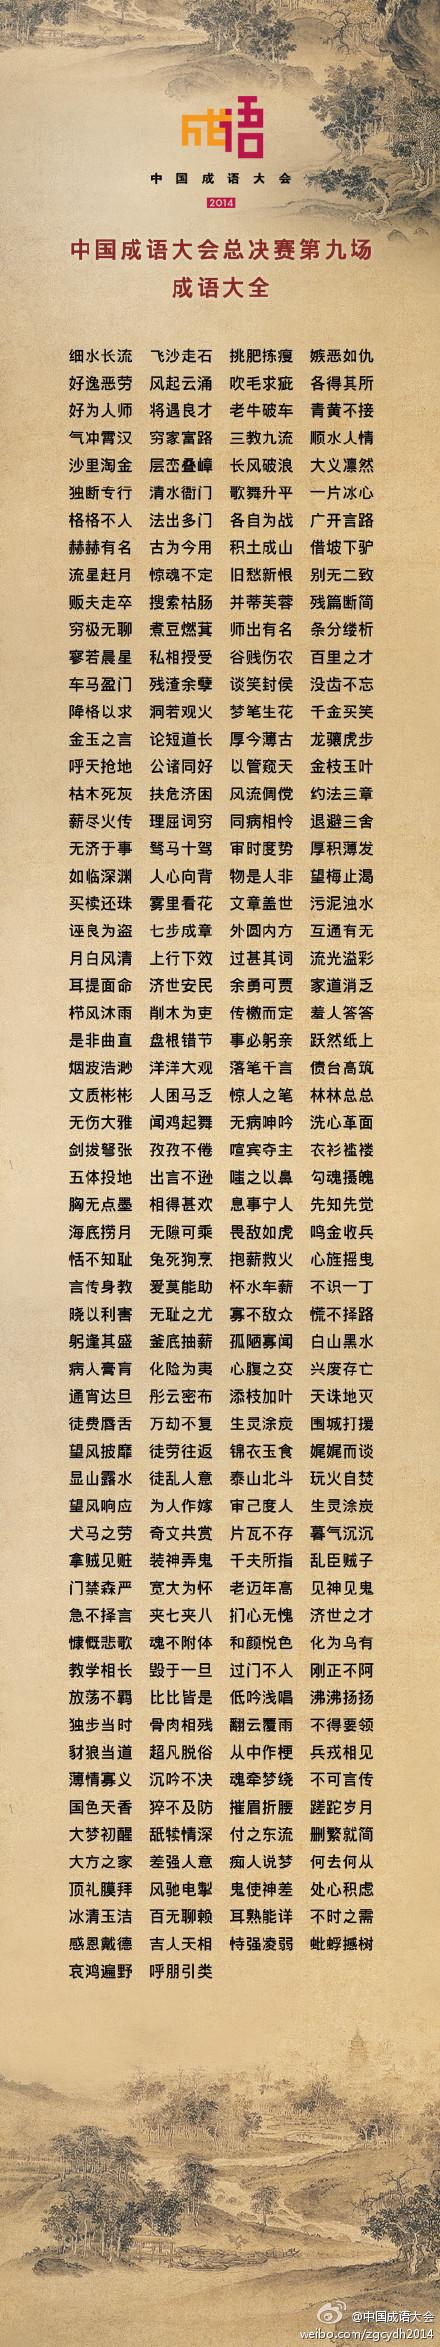 成语
中国成语大会
2014
中国成语大会总决赛第九场
成语大全
细水长流 飞沙走石 挑肥拣瘦 嫉恶如仇
好逸恶劳 风起云涌 吹毛求疵 各得其所
好为人师 将遇良才 老牛破车 青黄不接
气冲霄汉 穷家富路 三教九流 顺水人情
沙里淘金 层峦叠嶂 长风破浪 大义凛然
独断专行 清水衙门 歌舞升平 一片冰心
格格不入 法出多门 各自为战 广开言路
赫赫有名 古为今用 积土成山 借坡下驴
流星赶月 惊魂不定 旧愁新恨 别无二致
贩夫走卒 搜索枯肠 并蒂芙蓉 残篇断简
穷极无聊 煮豆燃萁 师出有名 条分缕析
寥若晨星 私相授受 谷贱伤农 百里之才
车马盈门 残渣余孽 谈笑封侯 没齿不忘
降格以求 洞若观火 梦笔生花 千金买笑
金玉之言 论短道长 厚今薄古 龙骧虎步
呼天抢地 公诸同好 以管窥天 金枝玉叶
枯木死灰 扶危济困 风流倜傥 约法三章
薪尽火传 理屈词穷 同病相怜 退避三舍
无济于事 驽马十驾 审时度势 厚积薄发
如临深渊 人心向背 物是人非 望梅止渴
买椟还珠 雾里看花 文章盖世 污泥浊水
诬良为盗 七步成章 外圆内方 互通有无
月白风清 上行下效 过甚其词 流光溢彩
耳提面命 济世安民 余勇可贾 家道消乏
栉风沐雨 削木为吏 传檄而定 羞人答答
是非曲直 盘根错节 事必躬亲 跃然纸上
烟波浩渺 洋洋大观 落笔千言 债台高筑
文质彬彬 人困马乏 惊人之笔 林林总总
无伤大雅 闻鸡起舞 无病呻吟 洗心革面
剑拔弩张 孜孜不倦 喧宾夺主 衣衫褴褛
五体投地 出言不逊 嗤之以鼻 勾魂摄魄
胸无点墨 相得甚欢 息事宁人 先知先觉
海底捞月 无隙可乘 畏敌如虎 鸣金收兵
恬不知耻 兔死狗烹 抱薪救火 心旌摇曳
言传身教 爱莫能助 杯水车薪 不识一丁
晓以利害 无耻之尤 寡不敌众 慌不择路
躬逢其盛 釜底抽薪 孤陋寡闻 白山黑水
病入膏肓 化险为夷 心腹之交 兴废存亡
通宵达旦 彤云密布 添枝加叶 天诛地灭
徒费唇舌 万劫不复 生灵涂炭 围城打援
望风披靡 徒劳往返 锦衣玉食 娓娓而谈
显山露水 徒乱人意 泰山北斗 玩火自焚
望风响应 为人作嫁 审己度人 生灵涂炭
犬马之劳 奇文共赏 片瓦不存 暮气沉沉
拿贼见赃 装神弄鬼 千夫所指 乱臣贼子
门禁森严 宽大为怀 老迈年高 见神见鬼
急不择言 夹七夹八 扪心无愧 济世之才
慷慨悲歌 魂不附体 和颜悦色 化为乌有
教学相长 毁于一旦 过门不入 刚正不阿
放荡不羁 比比皆是 低吟浅唱 沸沸扬扬
独步当时 骨肉相残 翻云覆雨 不得要领
豺狼当道 超凡脱俗 从中作梗 兵戎相见
薄情寡义 沉吟不决 魂牵梦绕 不可言传
国色天香 猝不及防 摧眉折腰 蹉跎岁月
大梦初醒 舐犊情深 付之东流 删繁就简
大方之家 差强人意 痴人说梦 何去何从
顶礼膜拜 风驰电掣 鬼使神差 处心积虑
冰清玉洁 百无聊赖 耳熟能详 不时之需
感恩戴德 吉人天相 恃强凌弱 蚍蜉撼树
哀鸿遍野 呼朋引类
@中国成语大会
weibo.com/zgcydh2014